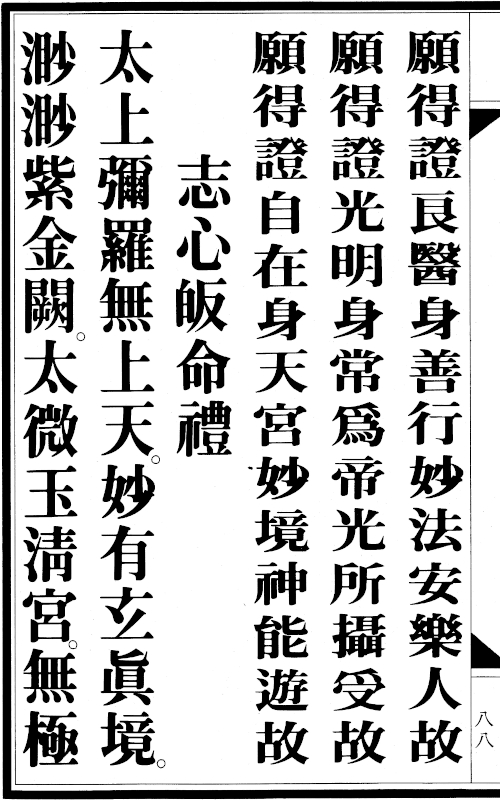 願得證良醫身善行妙法安樂人故
願得證光明身常爲帝光所攝受故
願得證自在身天宮妙境神能遊故
志心皈命禮
太上彌羅無上天。妙有玄眞境。
渺渺紫金闕。太微玉淸宮。無極
八八